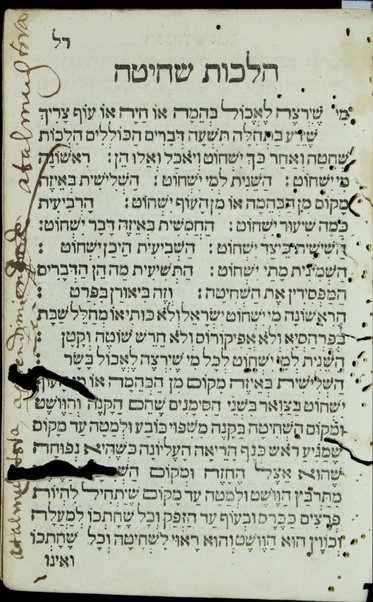 רל
הלכות שחיטה
מי שירצה לאכול בהמה או חיה או עוף צריך
שידע בתחלה תשעה דברים הכוללים הלכות
שחטה ואחר כך ישחוט ויאכל ואלו הן: ראשונה
מי ישחוט: השנית למי ישחוט: השלישית באיזה
מקום מן הבהמה או מן העוף ישחוט: הרביעית
כמה שיעור ישחוט: החמשית באיזה דבר ישחוט:
הששית כיצד ישחוט: השביעית היכן ישחוט:
השמנית מתי ישחוט: התשיעית מה הן הדברים
המפסידין את השחיטה: וזה ביאורן בפרט
הראשונה מי ישחוט ישראל ולא כותי או מחלל שבת
בפרהסיא ולא אפיקורוס ולא חרש שוטה וקטן
השנית למי ישחוט לכל מי שירצה לאכול בשר
השלישית באיזה מקום מן הבהמה או מן העוף
ישחוט בצואר בשני הסימנים שהם הקנה והוושט
ומקום השחיטה בקנה משפוי כובע ולמטה עד מקום
שמגיע ראש כנף הריאה העליונה כשהיא נפוחה
שהוא אצל החזה ומקום
מתרבץ הוושט ולמטה עד מקום שיתחיל להיות
פרצים ככרס ובעוף עד הזפק וכל שחתכו למעלה
וכווץ הוא הוושט והוא ראוי לשחיטה וכל שחתכו
ואינו